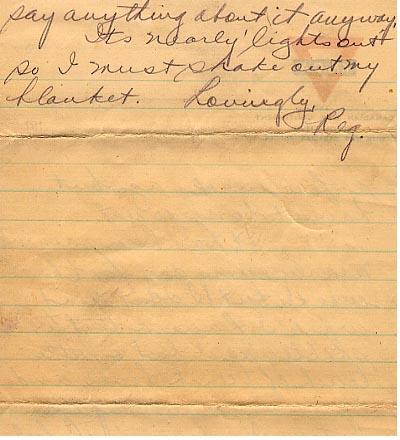 say anything about it anyway.
Its nearly lights out
so I must shake out my
blanket. Lovingly,
Reg.